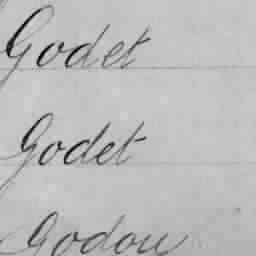 Godet
Godet
Godou